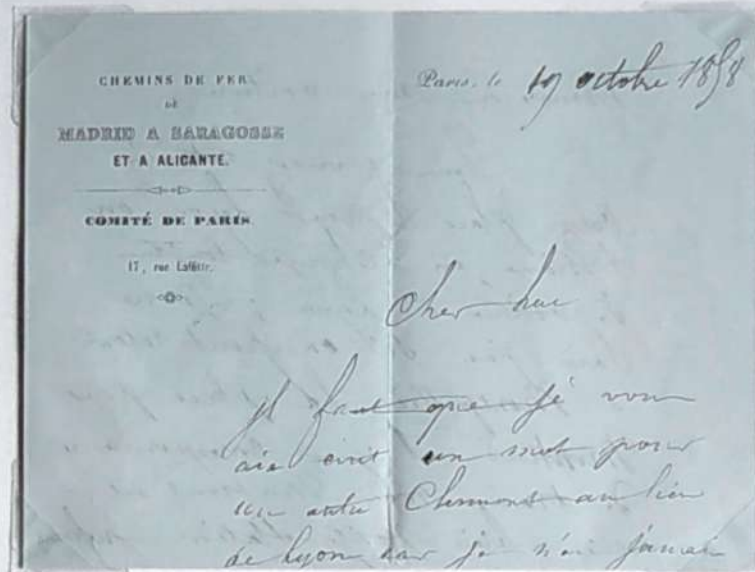 CHEMINS DE FER
DE
MADRID A SARAGOSSE
ET A ALICANTE.
COMITÉ DE PARIS.
17, rue Laffitte.
Paris, le 19 octobre 1858
Cher
il faut que je vous
aie écrit un mot pour
un autre Clermont au lieu
de Lyon car je n'ai jamais